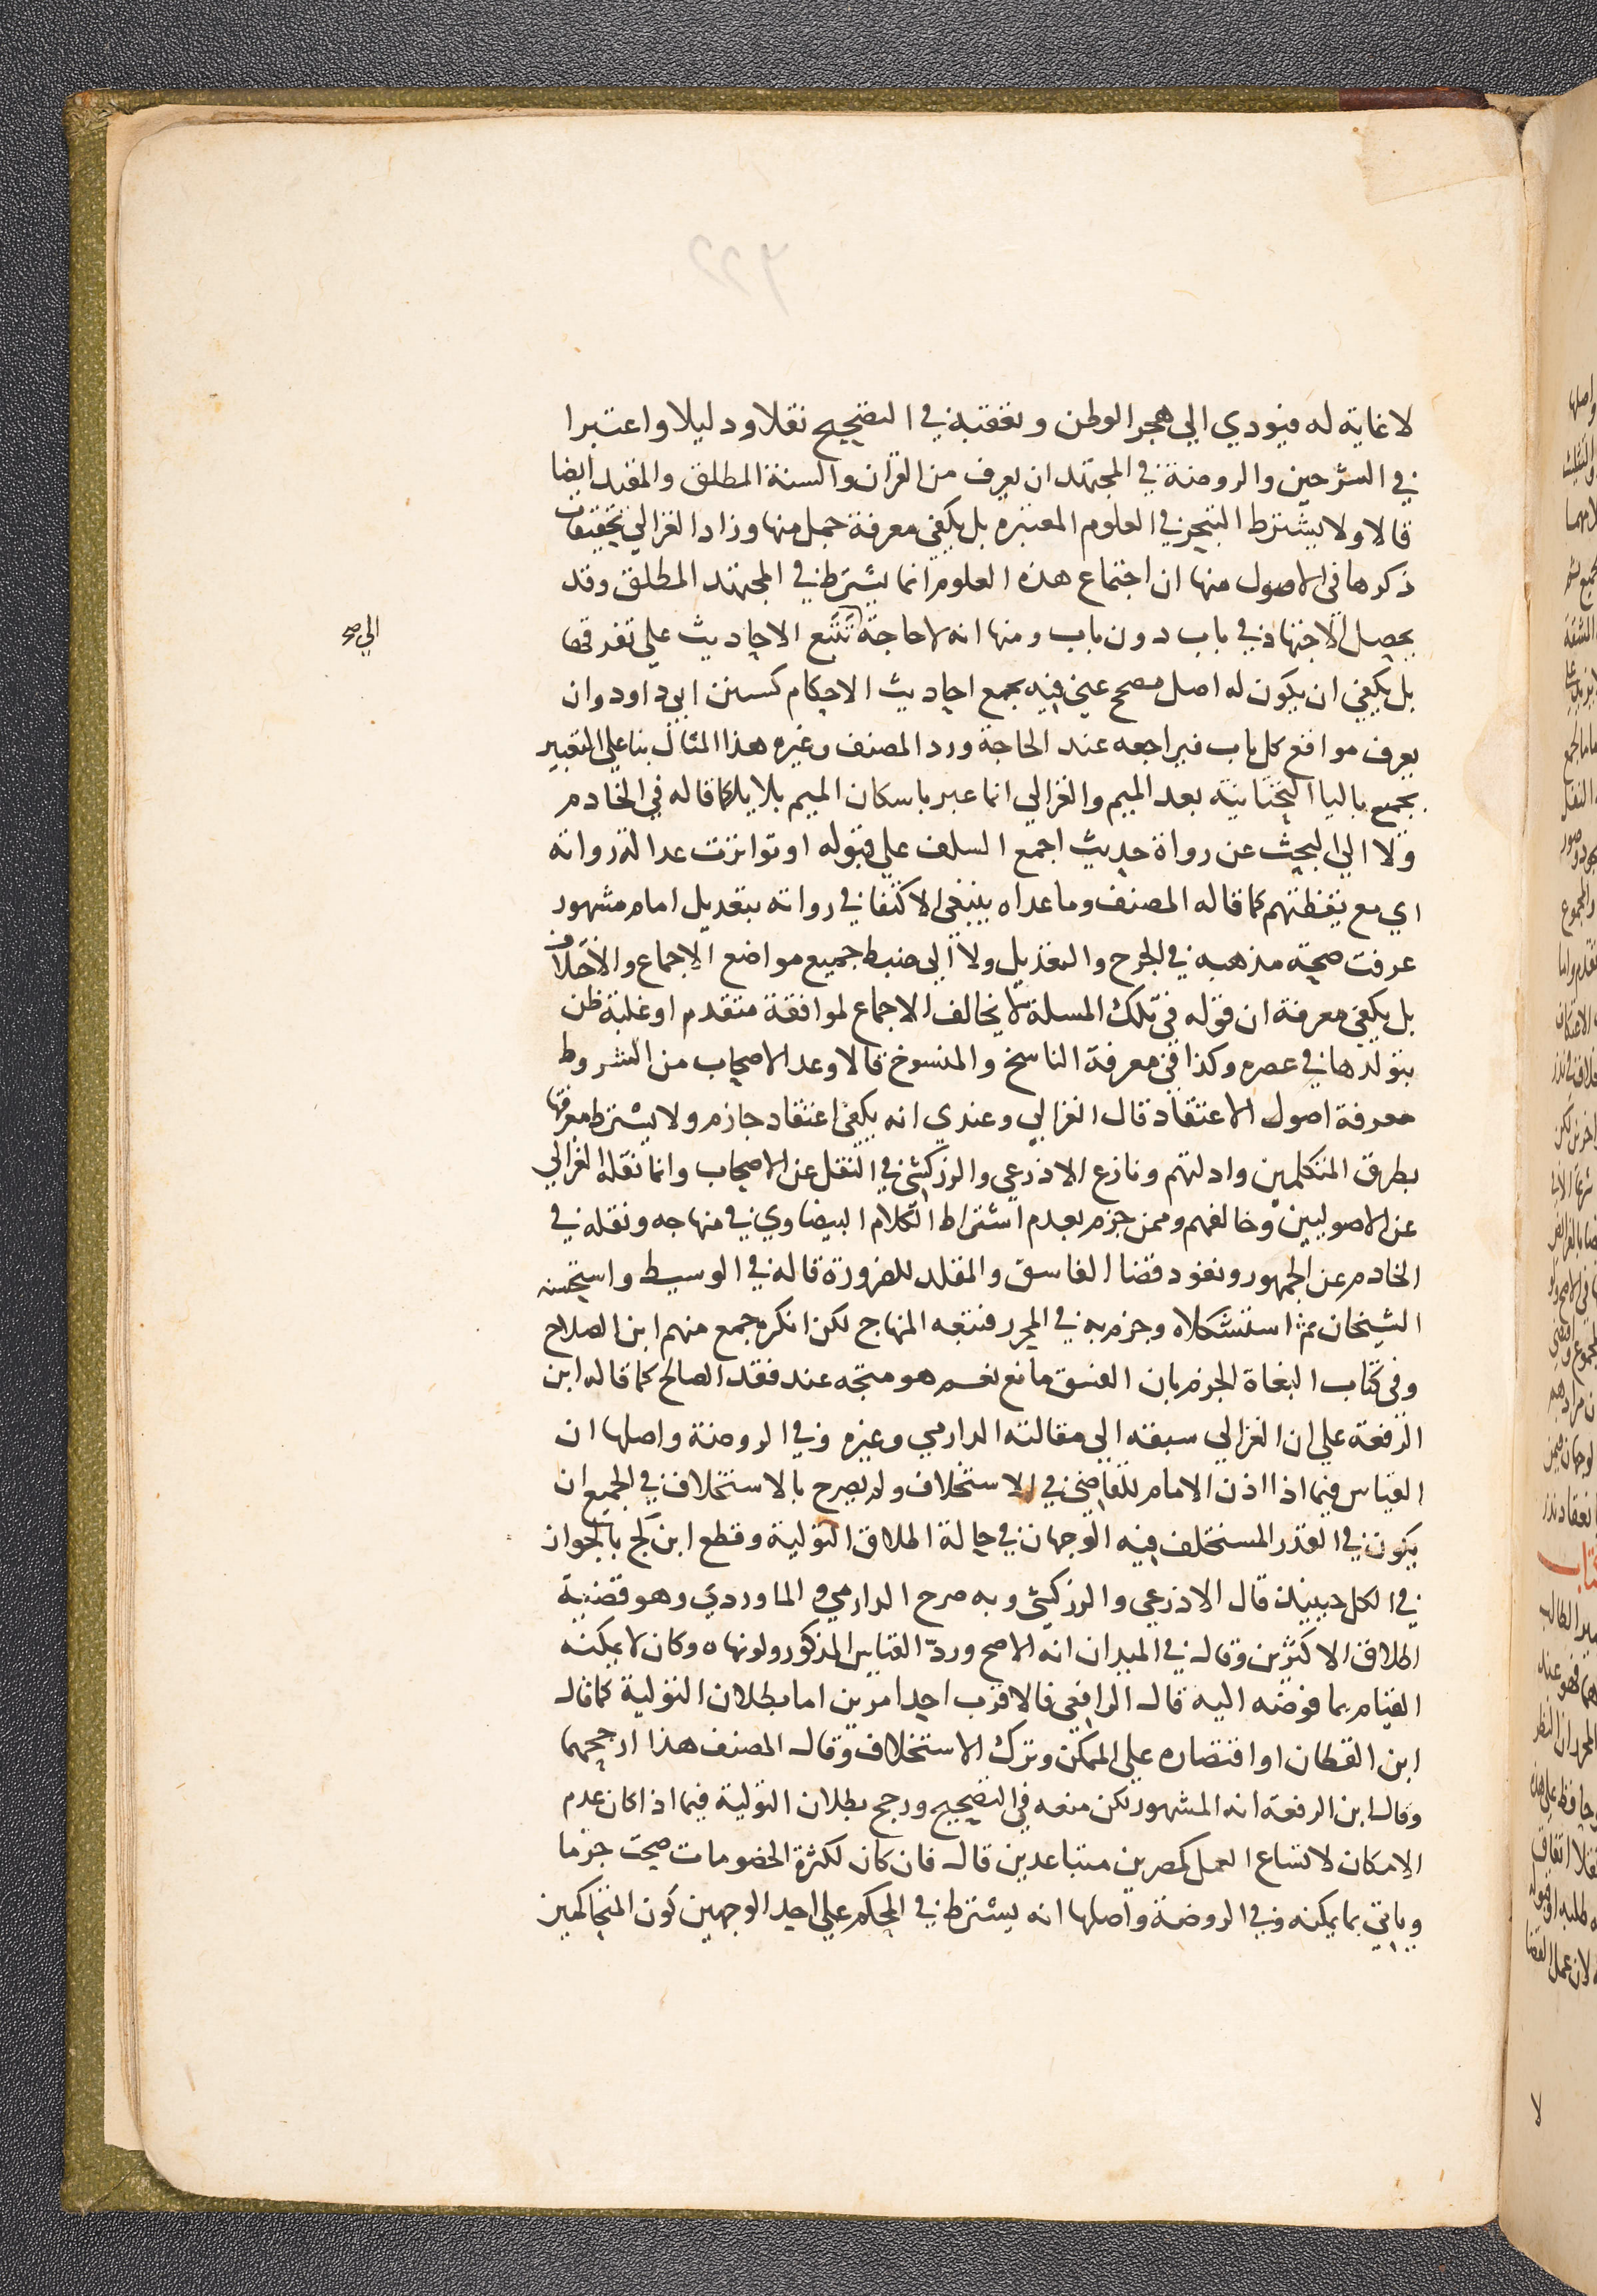 لا غاية له فيودي الي هجر الوطن وتعقبه في التصحيح نقلا ودليلا واعتبرا
في الشرحين والروضة في المجتهد ان يعرف من القران والسنة المطلق والمقيد ايضا
قالا ولا يشترط التبحر في العلوم المعتبره بل يكفي معرفة جمل منها وزاد الغزالي تخفيفات
ذكرها في الاصول منها ان اجتماع هذه العلوم انما يشترط في المجتهد المطلق وقد
يحصل الاجتهاد في باب دون باب ومنها انه لا حاجة تتبع الاحاديث علي تفرقها
الي صح
بل يكفي ان يكون له اصل مصحح عني فيه بجمع احاديث الاحكام كسنن ابي داود وان
يعرف مواقع كل باب فيراجعه عند الحاجة ورد المصنف وغيره هذا المثال بنا علي التعبير
بجميع باليا التحتانية بعد الميم والغزالي انما عبر باسكان الميم بلا يا كما قاله في الخادم
ولا الي البحث عن رواة حديث اجمع السلف علي قبوله او تواترت عدالة رواته
اي مع يقظتهم كما قاله المصنف وما عداه ينبغي الاكتفا في رواته بتعديل امام مشهور
عرفت صحة مذهبه في الجرح والتعديل ولا الي ضبط جميع مواضع الاجماع والاختلاف
بل يكفي معرفة ان قوله في تلك المسلة لا يخالف الاجماع لموافقة متقدم او غلبة ظن
بتولدها في عصره وكذا في معرفة الناسخ والمنسوخ قالا وعد الاصحاب من الشروط
معرفة اصول الاعتقاد قال الغزالي وعندي انه يكفي اعتقاد جازم ولا يشترط معرفتها
بطرق المتكلمين وادلتهم ونازع الاذرعي والزركشي في النقل عن الاصحاب وانما نقله الغزالي
عن الاصوليين وخالفهم وممن جزم بعدم اشتراط الكلام البيضاوي في منهاجه ونقله في
الخادم عن الجمهور ونفوذ قضا الفاسق والمقلد للضرورة قاله في الوسيط واستحسنه
الشيخان ثم استشكلاه وجزم به في المحرر فتبعه المنهاج لكن انكره جمع منهم ابن الصلاح
وفي كتاب البغاة الجزم بان الفسق مانع نعم هو متجه عند فقد الصالح كما قاله ابن
الرفعة علي ان الغزالي سبقه الي مقالته الدارمي وغيره وفي الروضة واصلها ان
القياس فيما اذا اذن الامام للقاضي في الاستخلاف ولم يصرح بالاستخلاف في الجميع ان
يكون في القدر المستخلف فيه الوجهان في حالة اطلاق التولية وقطع ابن كج بالجواز
في الكل حينئذ قال الاذرعي والزركشي وبه صرح الدارمي والماوردي وهو قضية
اطلاق الاكثرين وقال في الميدان انه الاصح وردّ القياس المذكور ولو نهاه وكان لا يمكنه
القيام بما فوضه اليه قال الرافعي فالاقرب احد امرين اما بطلان التولية كما قال
ابن القطان او اقتصاره علي الممكن وترك الاستخلاف وقال المصنف هذا ارجحهما
وقال ابن الرفعة انه المشهور لكن منعه في التصحيح ورجح بطلان التولية فيما اذا كان عدم
الامكان لاتساع العمل كمصرين متباعدين قال فان كان لكثرة الخصومات صحت جزما
وياتي بما يمكنه وفي الروضة واصلها انه يشترط في المحكم علي احد الوجهين كون المتحاكمين